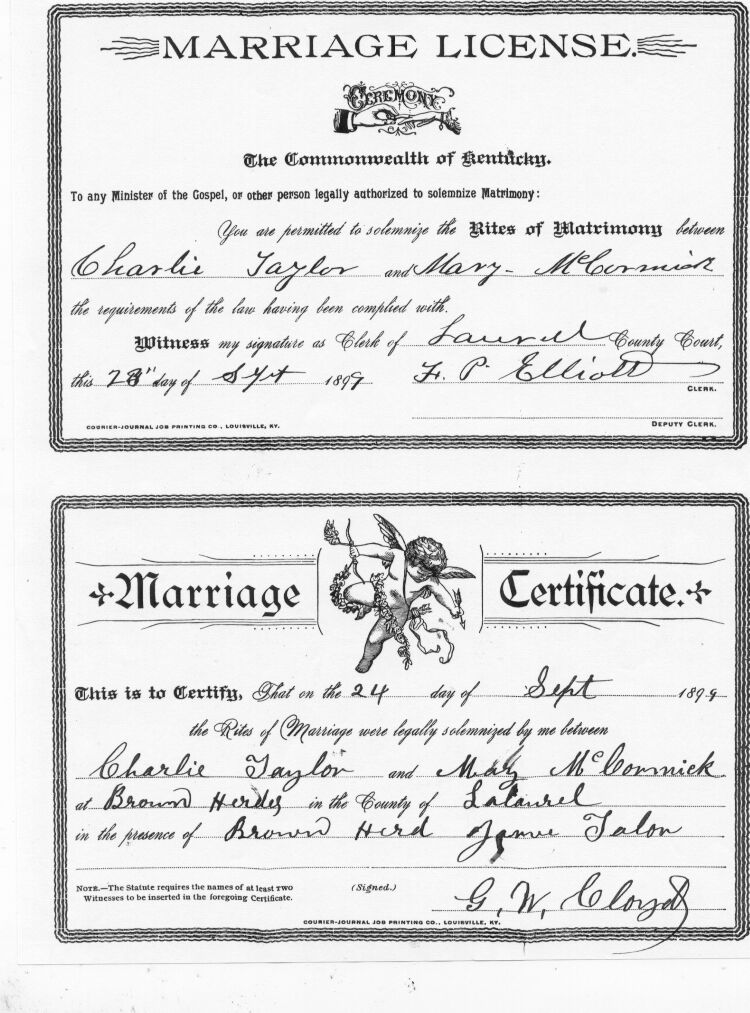 MARRIAGE LICENSE.
CEREMONY
The Commonwealth of Kentucky.
To any Minister of the Gospel, or other person legally authorized to solemnize Matrimony:
You are permitted to solemnize the Rites of Matrimony between
Charlie Taylor and Mary McCormick
the requirements of the law having been complied with.
Witness my signature as Clerk of Laurel County Court,
this day of Sept 1899 F. P. Elliott
CLERK.
DEPUTY CLERK.
COURIER-JOURNAL JOB PRINTING CO., LOUISVILLE, KY.
Marriage Certificate.
This is to Certify, That on the 24 day of Sept 1899
the Rites of Marriage were legally solemnized by me between
Charlie Taylor and Mary McCormick
at Brown Herds in the County of Lalaurel
in the presence of Brown Herd
NOTE.—The Statute requires the names of at least TWO
Witnesses to be inserted in the foregoing Certificate.
(Signed.)
G. W. Cloyd
COURIER-JOURNAL JOB PRINTING CO., LOUISVILLE, KY.